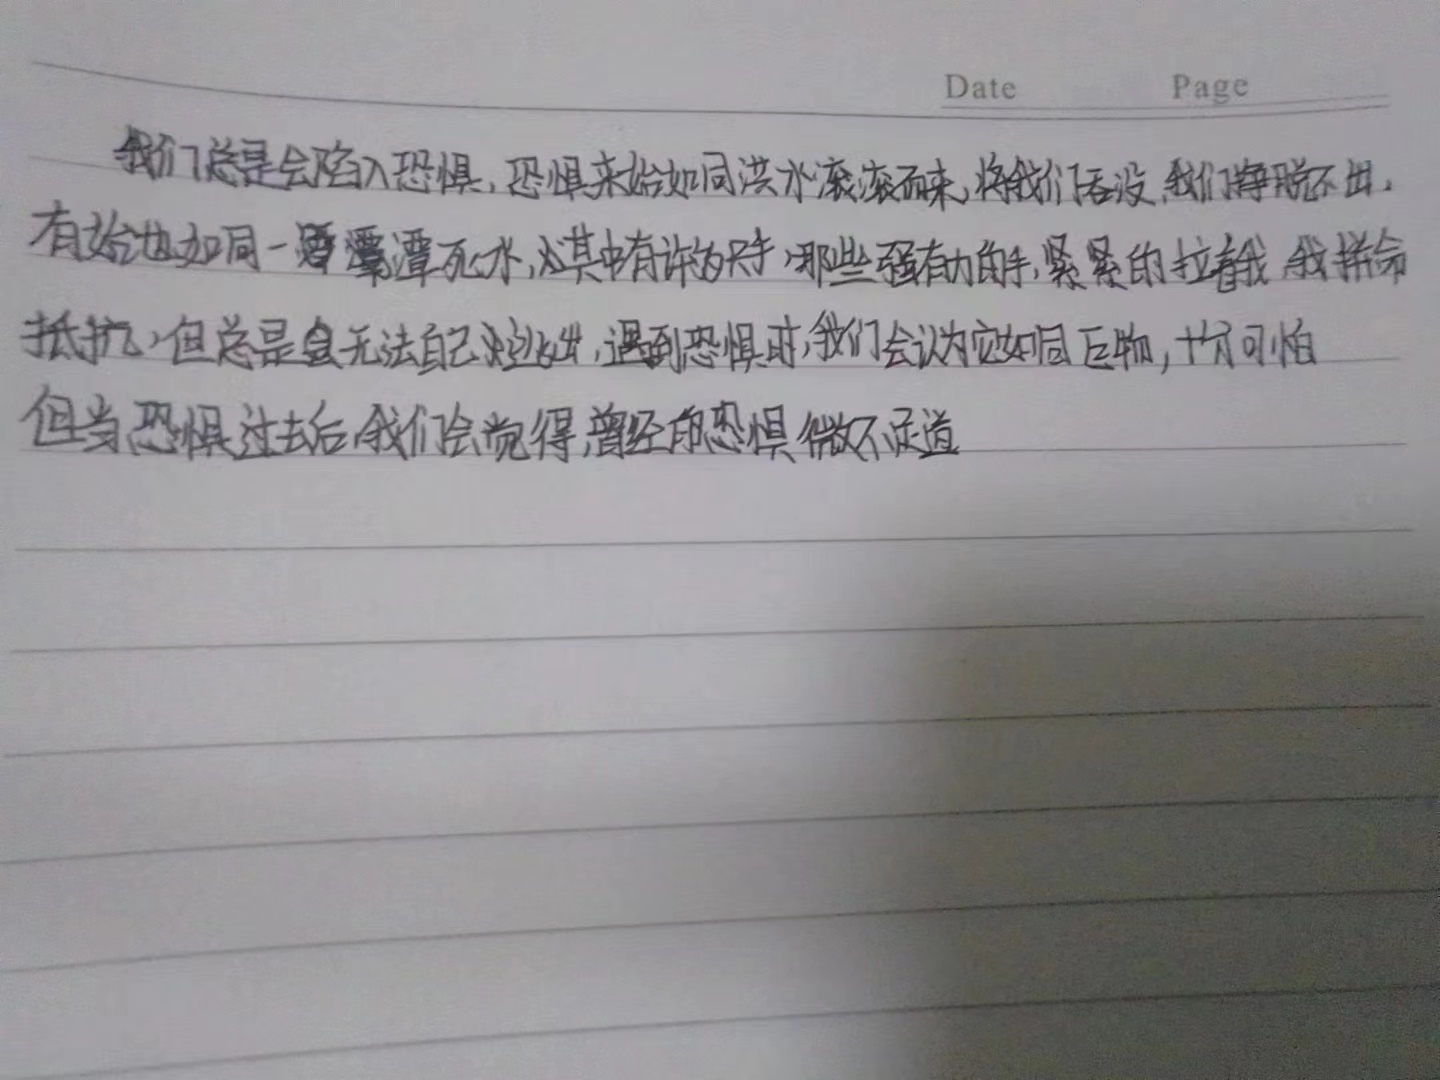 Date Page
我们总是会陷入恐惧，恐惧来始如同洪水滚滚而来，将我们吞没，我们挣脱不出，
有始也如同一潭死水，其中有许多只手，那些强有力的手，紧紧的拉着我，我拼命
抵抗，但总是会无法自己逃出，遇到恐惧时，我们会认为它如同巨物，十分可怕
但当恐惧过去后，我们会觉得，曾经的恐惧微不足道